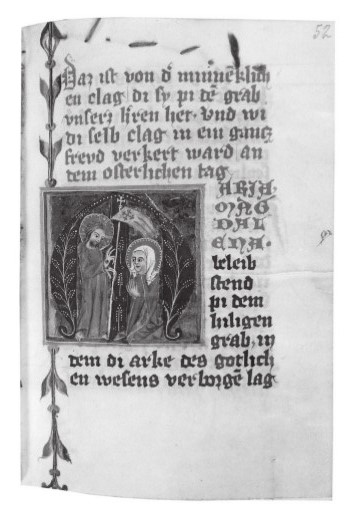 52
Daz ist von d' minneklich
en clag di sy pi dē grab
vnserz h'ren het. Vnd wi
di selb clag in ein gancz
frevd verkert ward an
dem osterlichen tag
ARIA
MAG
DAL
ENA.
beleib
stend
pi dem
hiligen
grab, in
dem di arke des gotlich
en wesens verborgē lag